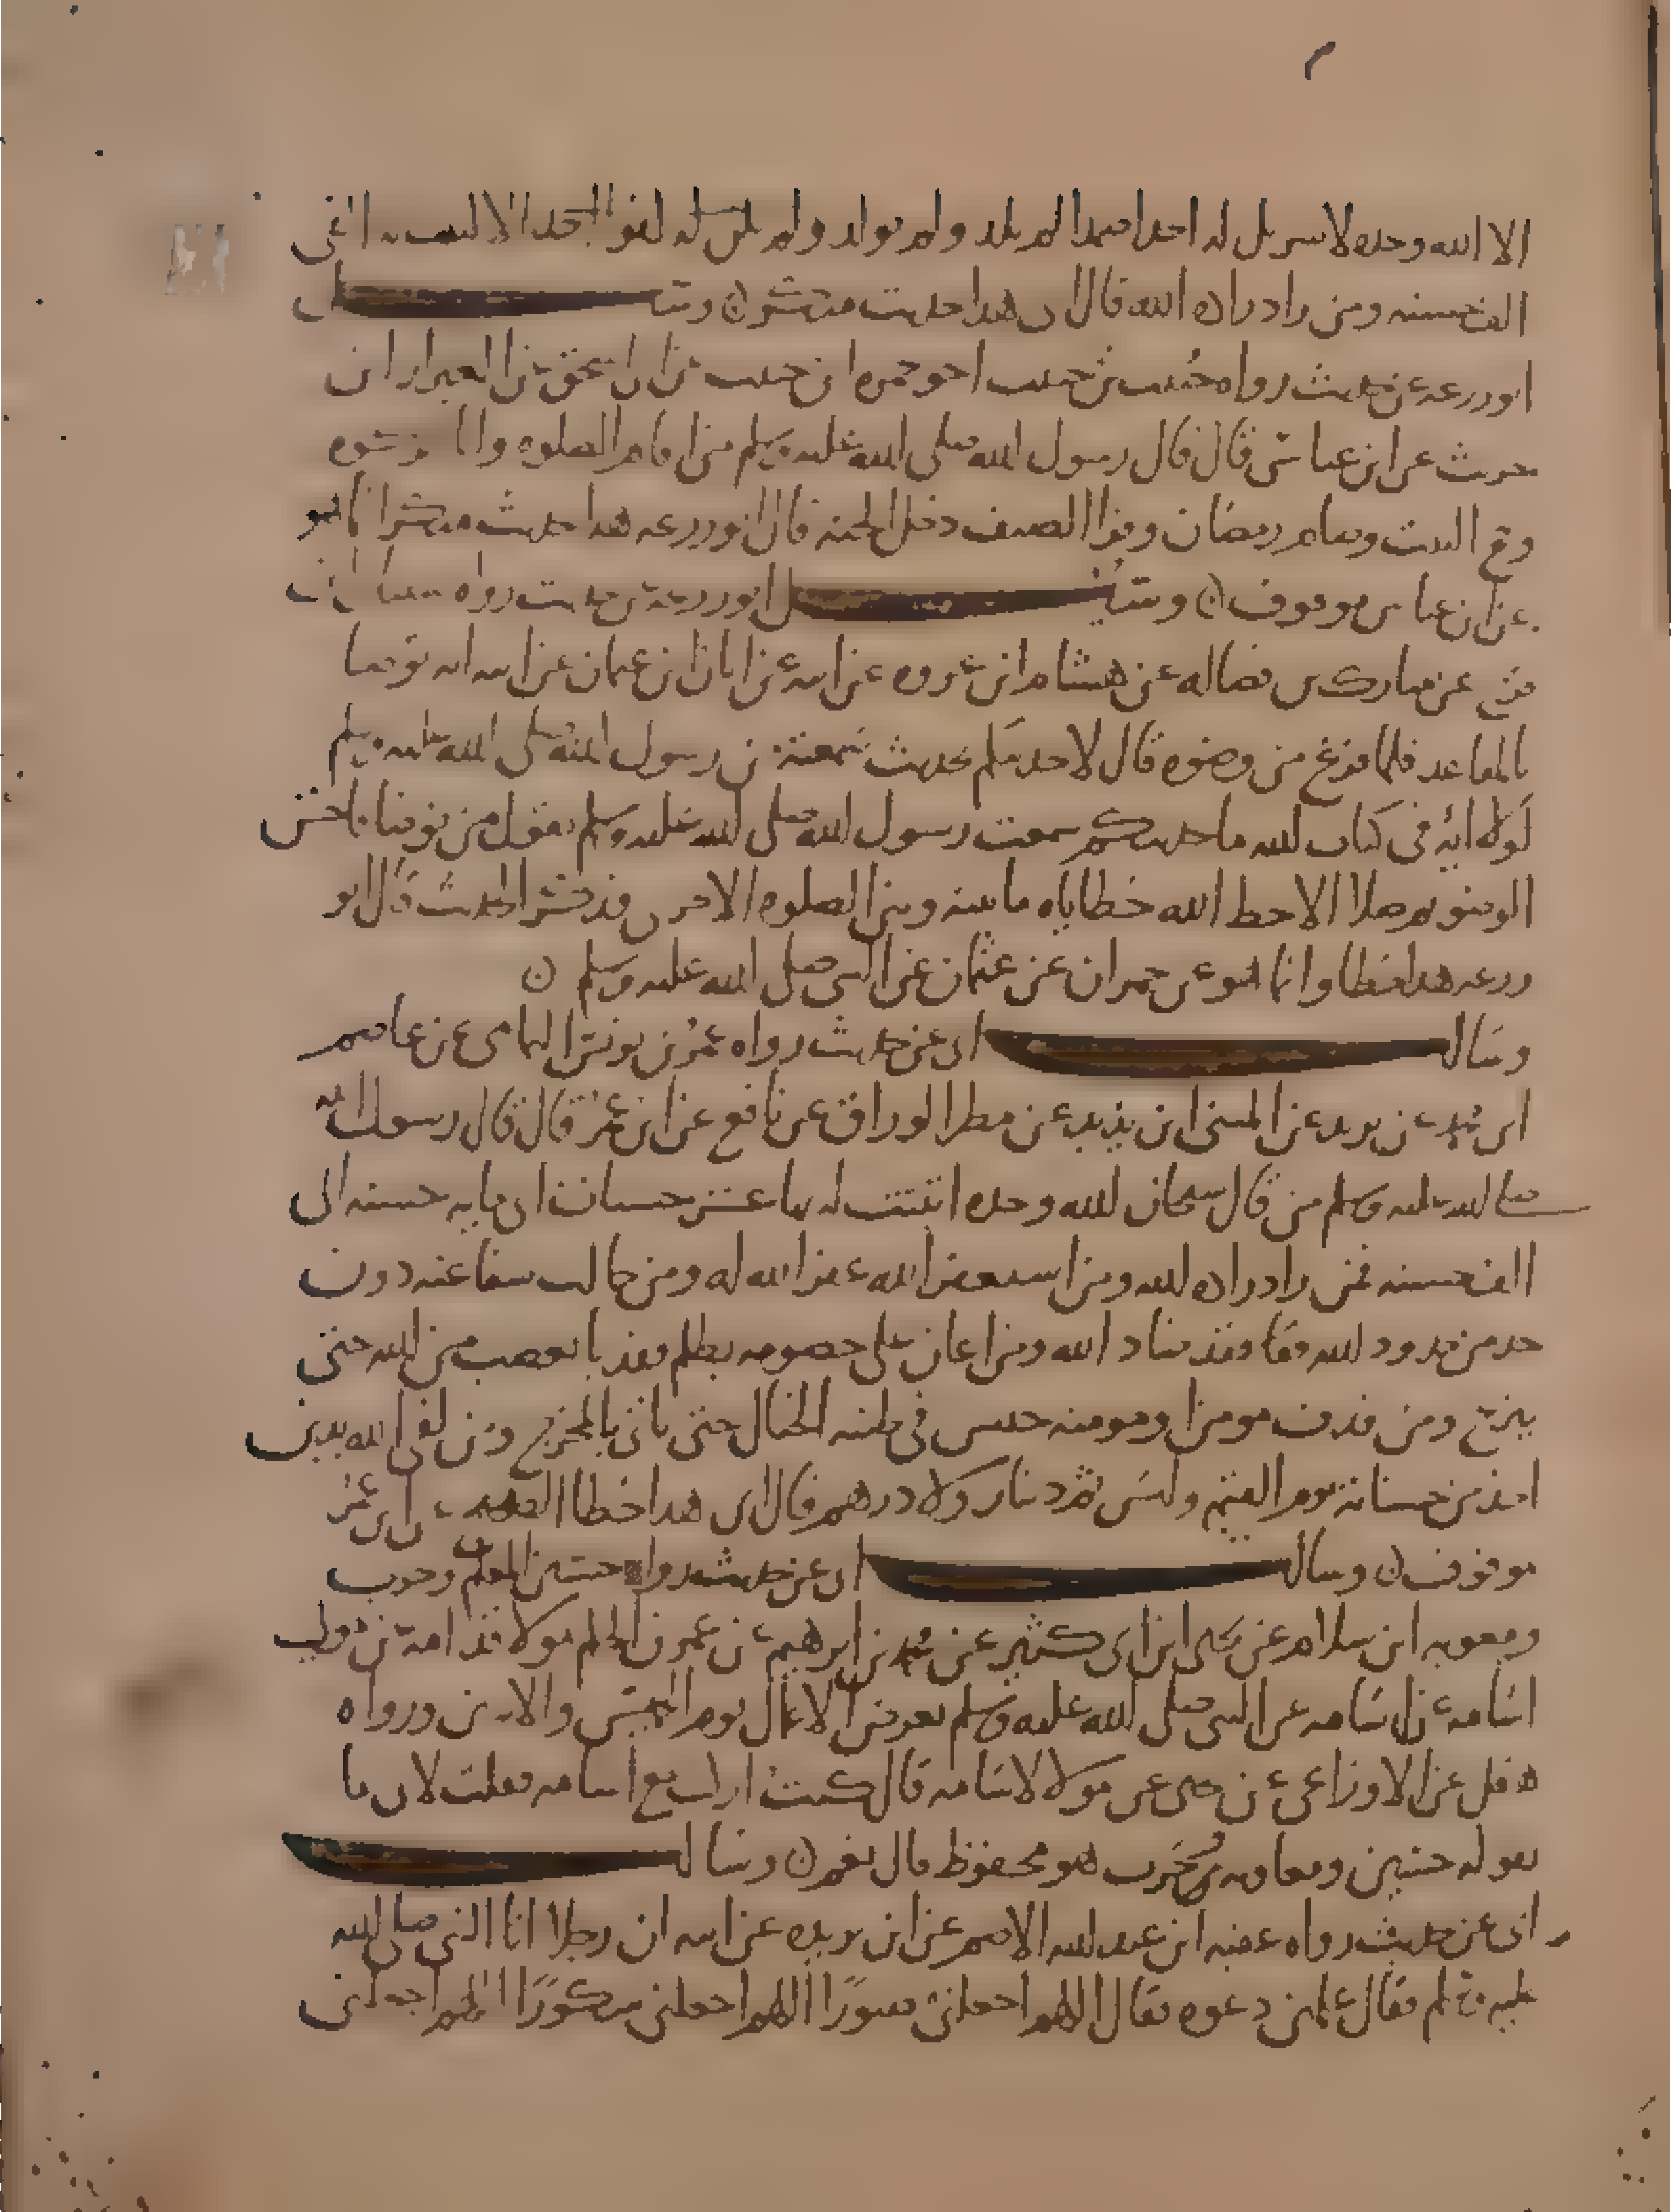 الا الله وحده لا شريك له احدا صمدا لم يلد ولم يولد ولم يكن له كفوا احد الا كتب له الفي
الف حسنه ومن زاد زاده الله قال ابي هذا حديث منكر ن وسئل
ابو زرعه عن حديث رواه حبيب بن حبيب اخو حمزه ابن حبيب عن ابي اسحق عن العيزار ابن
حريث عن ابن عباس قال قال رسول الله صلى الله عليه وسلم من اقام الصلوه واتا الزكوه
وحج البيت وصام رمضان وقرا الضيف دخل الجنه قال ابو زرعه هذا حديث منكر انما هو
عن ابن عباس موقوف ن وسئل ابو زرعه عن حديث رواه شيبان ابن
فروخ عن مبارك بن فضاله عن هشام ابن عروه عن ابيه عن ابان ابن عثمان عن ابيه انه توضا
بالمقاعد فلما فرغ من وضوه قال لاحدثنكم بحديث سمعته من رسول الله صلى الله عليه وسلم
لولا ايه في كتاب الله ما حدثتكم سمعت رسول الله صلى الله عليه وسلم يقول من توضا فاحسن
الوضو ثم صلا الا حط الله خطاياه ما بينه وبين الصلوه الاخرى فذكر الحديث قال ابو
زرعه هذا خطا وانما هو عن حمران عن عثمان عن النبي صلى الله عليه وسلم ن
وسالت ابي عن حديث رواه عمر بن يونس اليمامي عن عاصم
ابن محمد بن زيد عن المثنى ابن يزيد عن مطر الوراق عن نافع عن ابن عمر قال قال رسول الله
صلى الله عليه وسلم من قال سبحان الله وحده اثبتت له بها عشر حسنات الى مايه حسنه الى
الف حسنه فمن زاد زاده الله ومن استغفر الله غفر الله له ومن حالت شفاعته دون
حد من حدود الله فقد ضاد الله ومن اعان على خصومه بظلم فقد با بغضب من الله حتى
ينزع ومن قذف مومنا ومومنه حبس في طينه الخبال حتى ياتي بالمخرج ومن لقي الله بدين
اخذ من حسناته يوم القيمه وليس ثم دينار ولا درهم قال ابي هذا خطا الصحيح عن ابن عمر
موقوف ن وسالت ابي عن حديث رواه حسين المعلم وحرب
ومعويه ابن سلام عن يحيى ابن ابي كثير عن محمد بن ابرهيم عن عمر بن الحكم مولا قدامه عن مولى
اسامه عن اسامه عن النبي صلى الله عليه وسلم تعرض الاعمال يوم الخميس والاثنين ورواه
هقل عن الاوزاعي عن يحيى عن مولا لاسامه قال كنت اركب مع اسامه فقلت لابي ما
يقوله حسين ومعاويه وحرب هو محفوظ قال نعم ن وسالت
ابي عن حديث رواه عقبه ابن عبد الله الاصم عن ابن بريده عن ابيه ان رجلا اتا النبي صلى الله
عليه وسلم فقال علمني دعوه فقال اللهم اجعلني صبورا اللهم اجعلني شكورا اللهم اجعلني